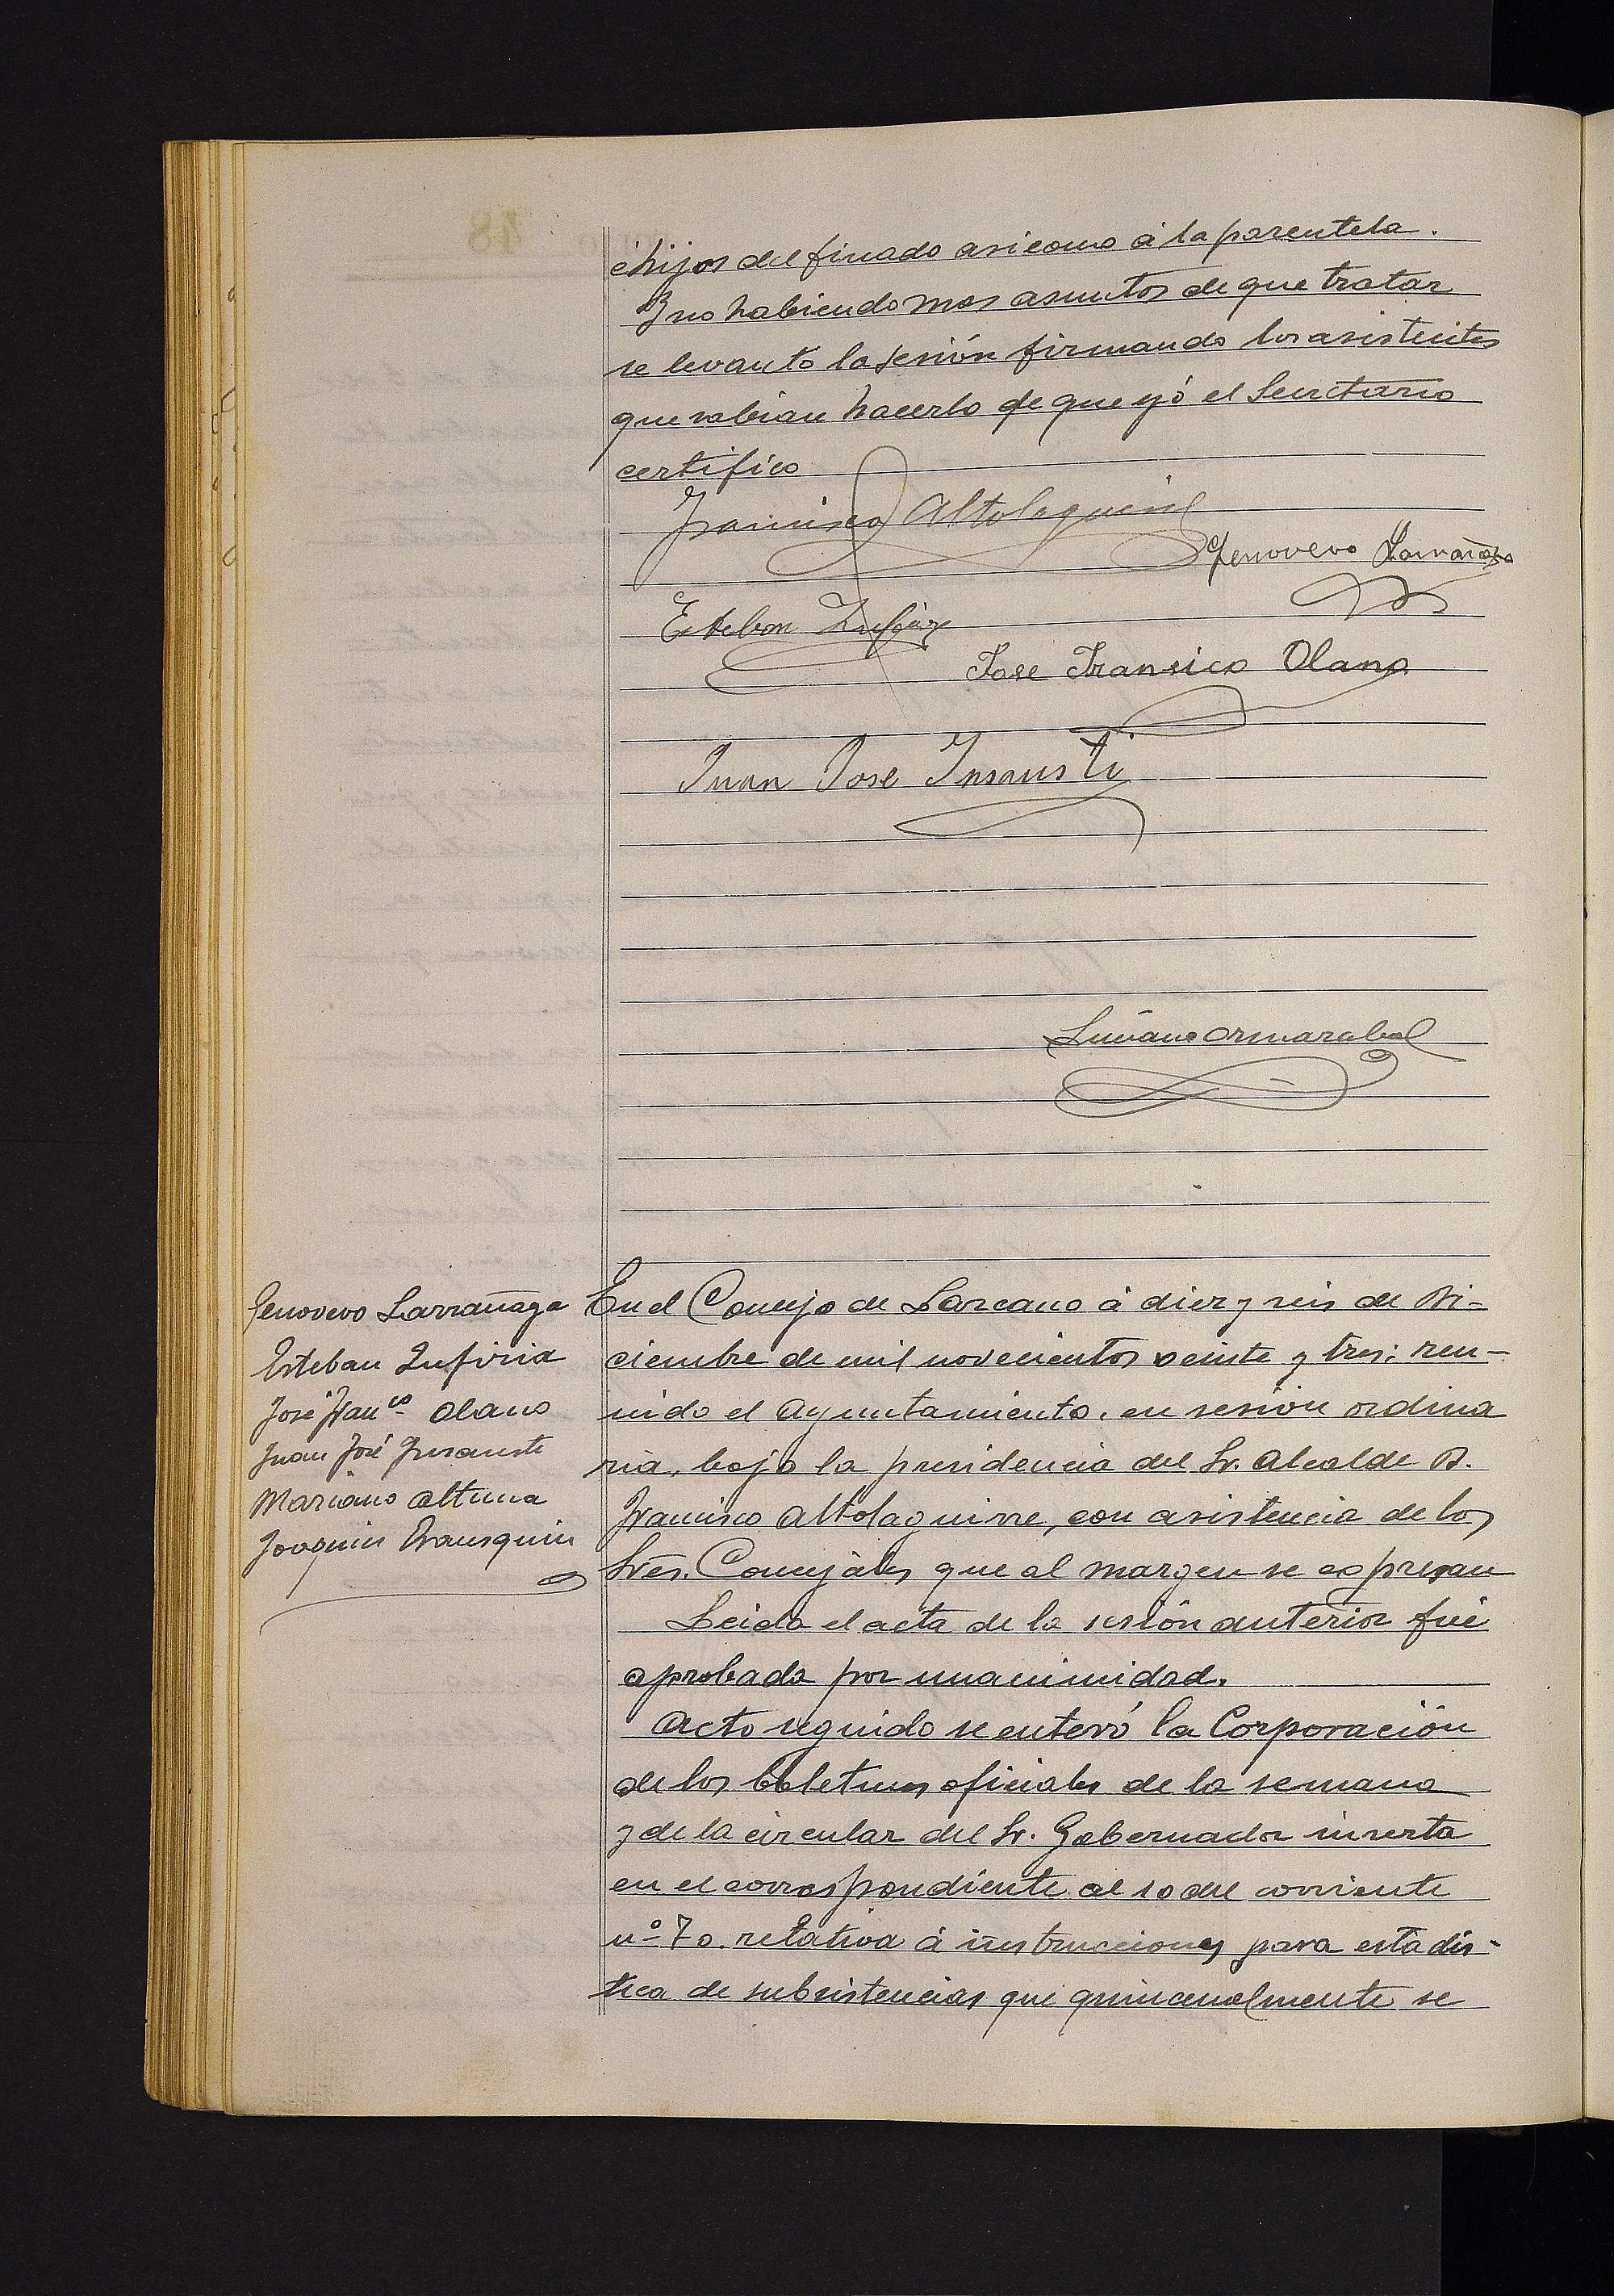 é hijos del finado asi como á la parentela.
Y no habiendo mas asuntos de que tratar
se levanto la sesión firmando los asistentes
que sabian hacerlo de que yó el Secretario
certifico
Francisco Altolaguirre
Genovevo Larrañaga
Esteban Zufiria
Jose Fransico Olano
Juan Jose Insausti
Luciano Ormazabal
Genovevo Larrañaga
Esteban Zufiria
José Franco Olano
Juan José Insausti
Mariano Altuna
Joaquin Yrausquin
En el Concejo de Lazcano á diez y seis de Di-
ciembre de mil novecientos veinte y tres: reu-
nido el Ayuntamiento, en sesión ordina
ria, bajo la presidencia del Sr. Alcalde D.
Francisco Altolaguirre, con asistencia de los
Sres. Concejales que al margen se expresan
Leida el acta de la sesión anterior fué
aprobada por unanimidad.
Acto seguido se enteró la Corporación
de los boletines oficiales de la semana
y de la circular del Sr. Gobernador inserta
en el correspondiente al 10 del corriente
nº 70. relativa á instrucciones para estadis-
tica de subsistencias que quincenalmente se